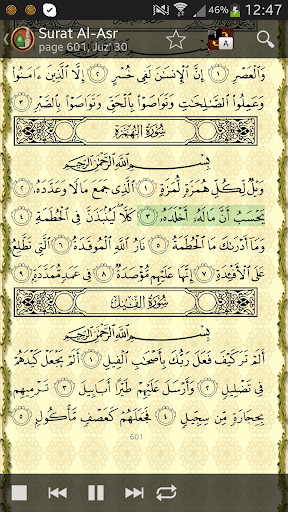 46% 12:47
Surat Al-Asr
page 601, Juz' 30
A
وَٱلْعَصْرِ ۝١ إِنَّ ٱلْإِنسَٰنَ لَفِى خُسْرٍ ۝٢ إِلَّا ٱلَّذِينَ ءَامَنُوا۟
وَعَمِلُوا۟ ٱلصَّٰلِحَٰتِ وَتَوَاصَوْا۟ بِٱلْحَقِّ وَتَوَاصَوْا۟ بِٱلصَّبْرِ ۝٣
سُورَةُ الهُمَزَةِ
بِسْمِ ٱللَّهِ ٱلرَّحْمَٰنِ ٱلرَّحِيمِ
وَيْلٌ لِّكُلِّ هُمَزَةٍ لُّمَزَةٍ ۝١ ٱلَّذِى جَمَعَ مَالًا وَعَدَّدَهُۥ ۝٢
يَحْسَبُ أَنَّ مَالَهُۥٓ أَخْلَدَهُۥ ۝٣ كَلَّا لَيُنۢبَذَنَّ فِى ٱلْحُطَمَةِ ۝٤
وَمَآ أَدْرَىٰكَ مَا ٱلْحُطَمَةُ ۝٥ نَارُ ٱللَّهِ ٱلْمُوقَدَةُ ۝٦ ٱلَّتِى تَطَّلِعُ
عَلَى ٱلْأَفْـِٔدَةِ ۝٧ إِنَّهَا عَلَيْهِم مُّؤْصَدَةٌ ۝٨ فِى عَمَدٍ مُّمَدَّدَةٍۭ ۝٩
سُورَةُ الفِيلِ
بِسْمِ ٱللَّهِ ٱلرَّحْمَٰنِ ٱلرَّحِيمِ
أَلَمْ تَرَ كَيْفَ فَعَلَ رَبُّكَ بِأَصْحَٰبِ ٱلْفِيلِ ۝١ أَلَمْ يَجْعَلْ كَيْدَهُمْ
فِى تَضْلِيلٍ ۝٢ وَأَرْسَلَ عَلَيْهِمْ طَيْرًا أَبَابِيلَ ۝٣ تَرْمِيهِم
بِحِجَارَةٍ مِّن سِجِّيلٍ ۝٤ فَجَعَلَهُمْ كَعَصْفٍ مَّأْكُولٍۭ ۝٥
601